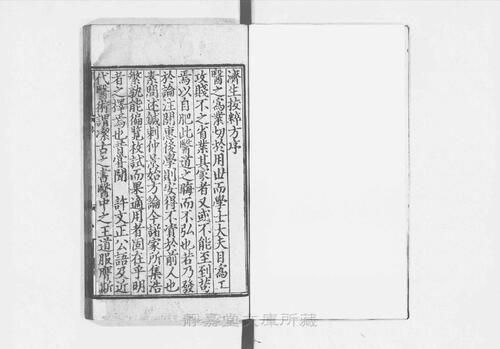 濟生拔粹方序
醫之爲業切於用世而學士大夫目爲工
技賤不之省業其家者又或不能至到苟
焉以自肥此醫道之晦而不弘也若乃發
於論注開惠後學則安得不資於前人也
素問述鍼刺仲景始方論今諸家所集浩
繁孰能偏覽校試而果適用者固在乎明
者之擇焉也昔嘗聞許文正公語及近
代醫術謂潔古之書醫中之王道服膺斯
静嘉堂文庫所藏